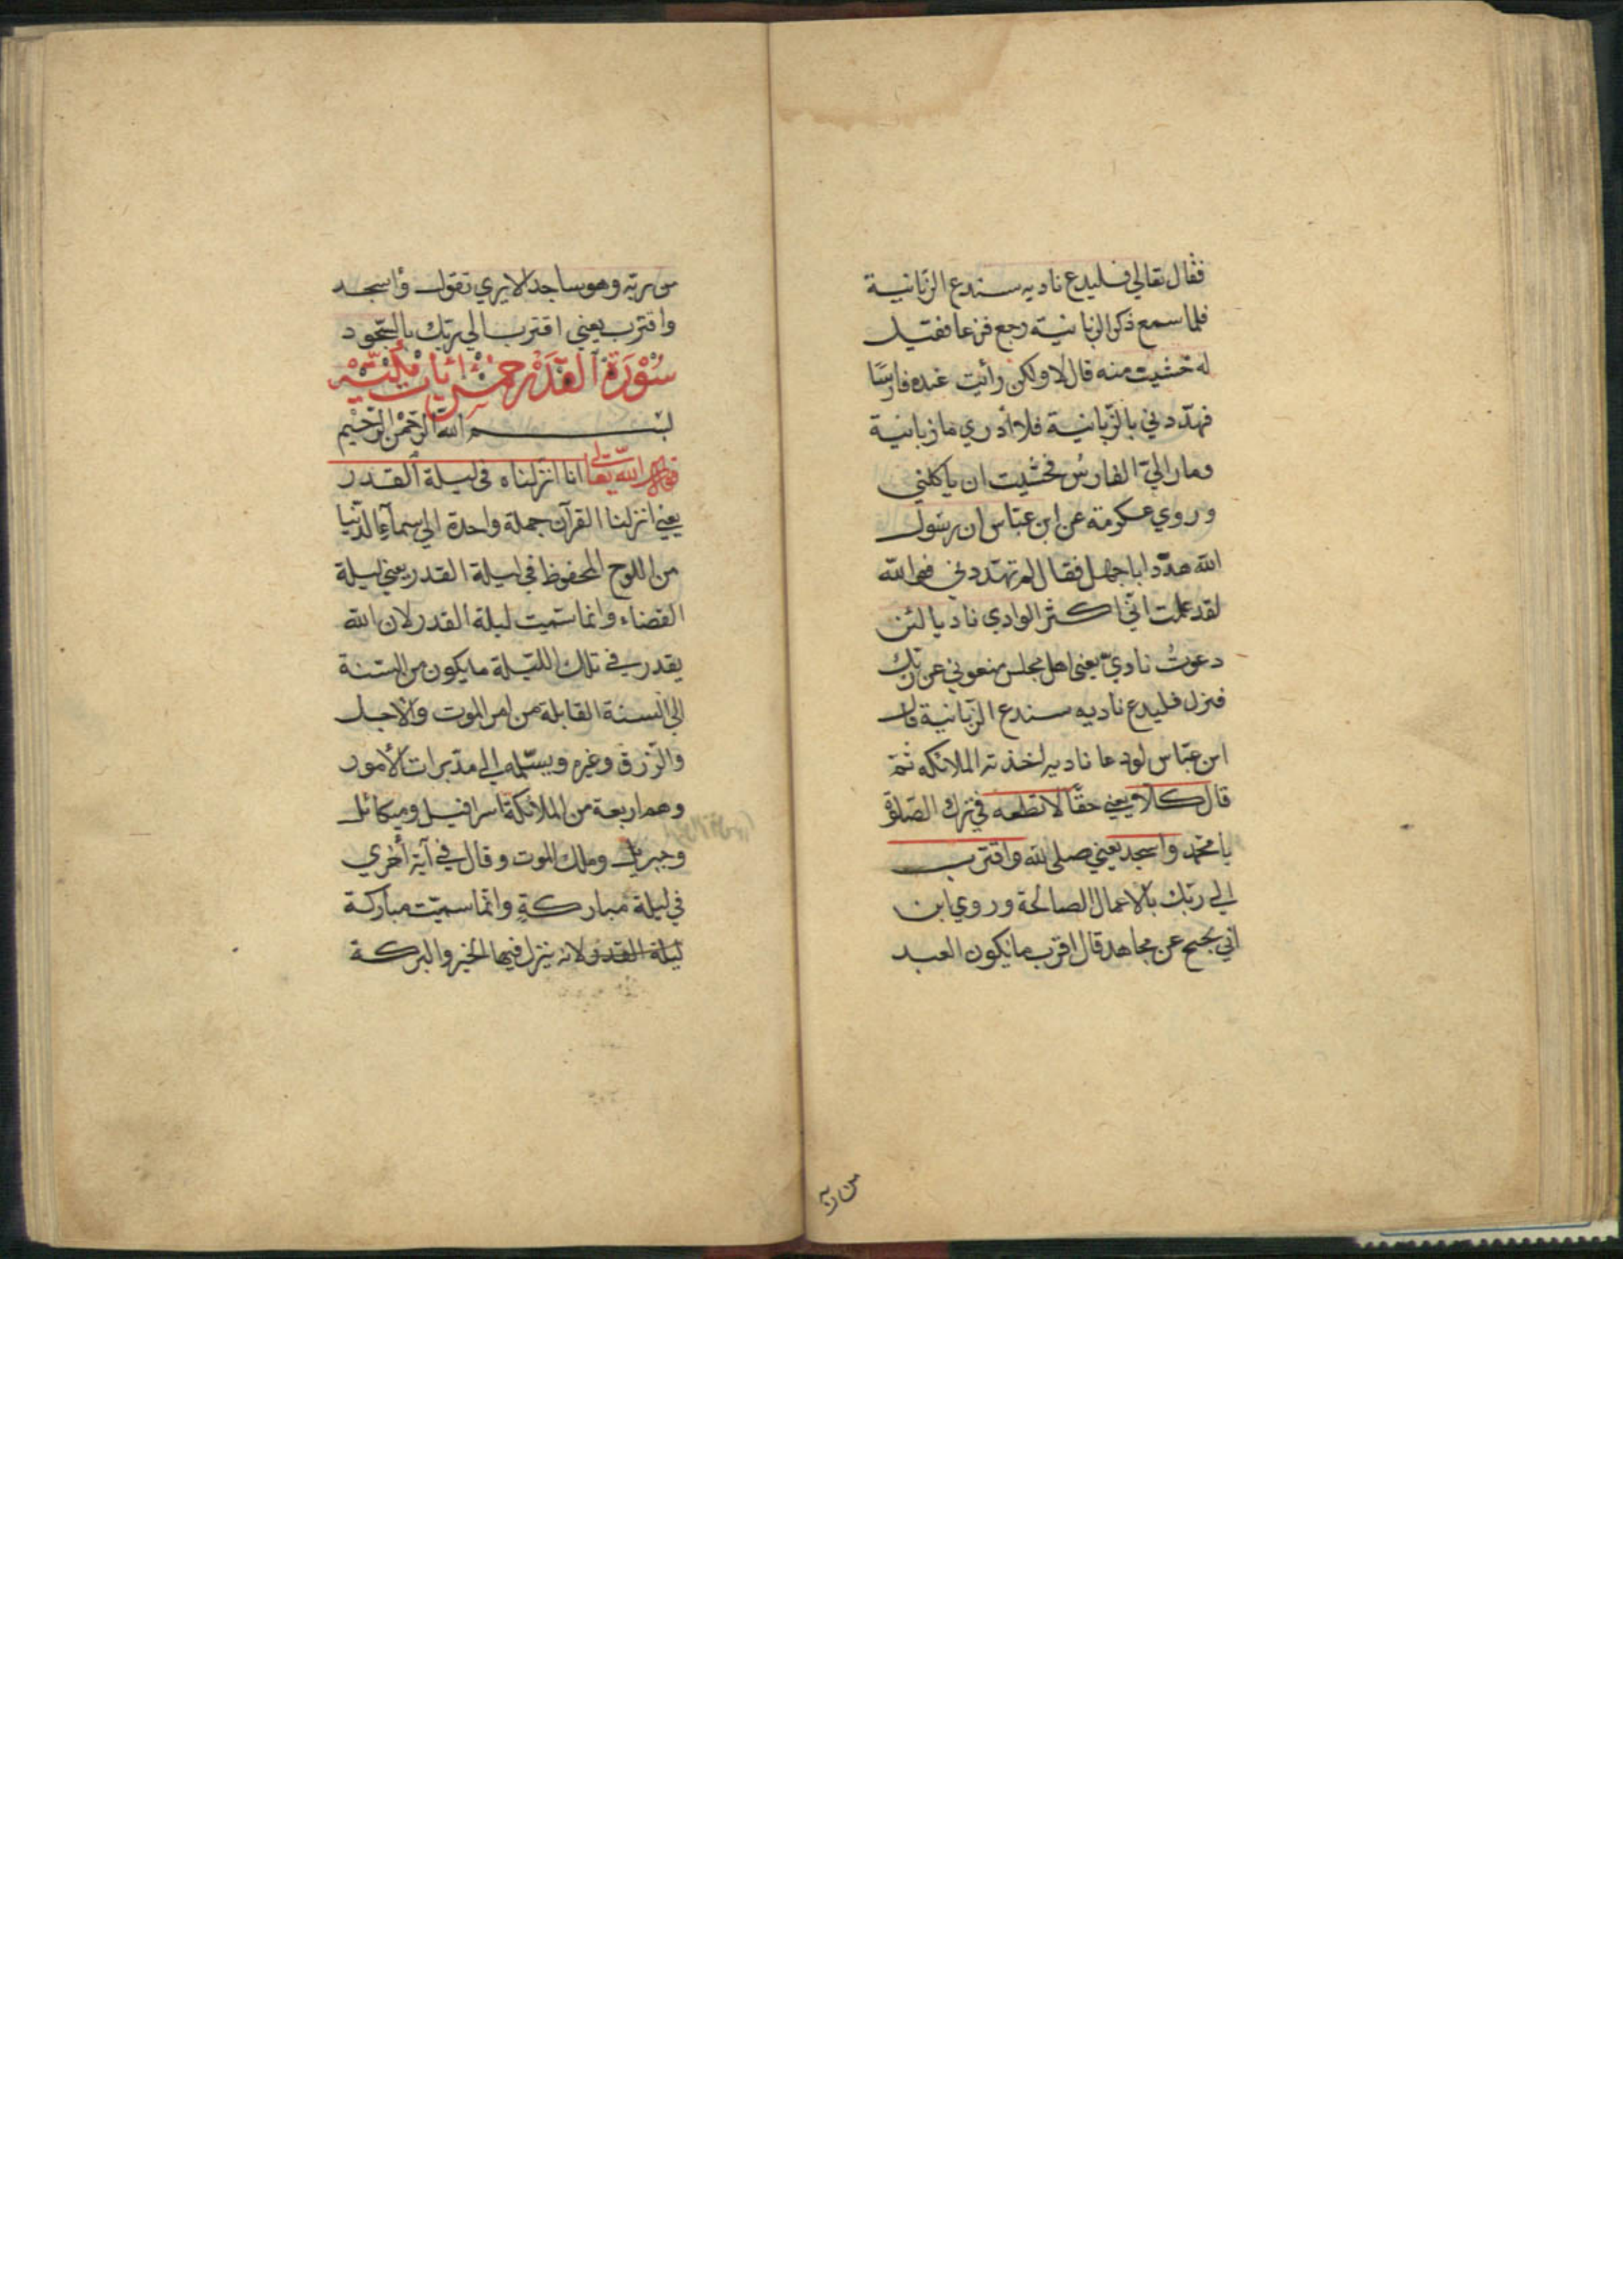 فقال تعالي فليدع ناديه سندع الزبانية
فلما سمع ذكر الزبانية رجع فزعا فقيل
له خشيت منه قال لا ولكن رأيت عنده فارسا
فهددني بالزبانية فلا أدري ما زبانية
ومار الي الفارس فخشيت ان ياكلني
وروي عكرمة عن ابن عباس ان رسول
الله هدد ابا جهل فقال لم تهددني فوالله
لقد علمت اني اكثر الوادي ناديا لئن
دعوت نادي يعني اهل مجلس منعوني عن ربك
فنزل فليدع ناديه سندع الزبانية قال
ابن عباس لو دعا ناديه لخذته الملائكه ثم
قال كلا يعني حقا لا تطعه في ترك الصلوة
يا محمد واسجد يعني صلى لله واقترب
الي ربك بالاعمال الصالحة وروي ابن
ابي نجيح عن مجاهد قال اقرب ما يكون العبد
من ربه
من ربه وهو ساجد الا يري تقول واسجد
واقترب يعني اقترب الي ربك بالسجود
سورة القدر خمس ايات مكية
بسم الله الرحمن الرحيم
قول الله تعالى انا انزلناه في ليلة القدر
يعني انزلنا القرآن جملة واحدة الي سمآء الدنيا
من اللوح المحفوظ في ليلة القدر يعني ليلة
القضاء وانما سميت ليلة القدر لان الله
يقدر في تلك الليلة ما يكون من السنة
الى السنة القابلة من امر الموت والاجل
والرزق وغيره ويسلمه الي مدبرات الأمور
وهم اربعة من الملائكة اسرافيل وميكائل
وجبريل وملك الموت وقال في آية أخري
في ليلة مباركة وانما سميت مباركة
ليلة القدر لانه ينزل فيها الخير والبركة